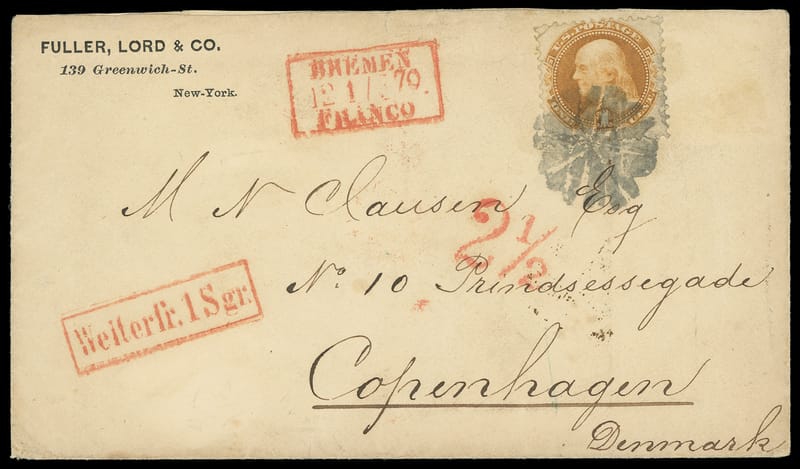 FULLER, LORD & CO.
139 Greenwich-St.
New-York.
BREMEN
12 1/ 5 70.
FRANCO
U.S. POSTAGE
1
M N Clausen Esq
2 1/2
No. 10 Prindsessegade
Weiterfr. 1 Sgr.
Copenhagen
Denmark